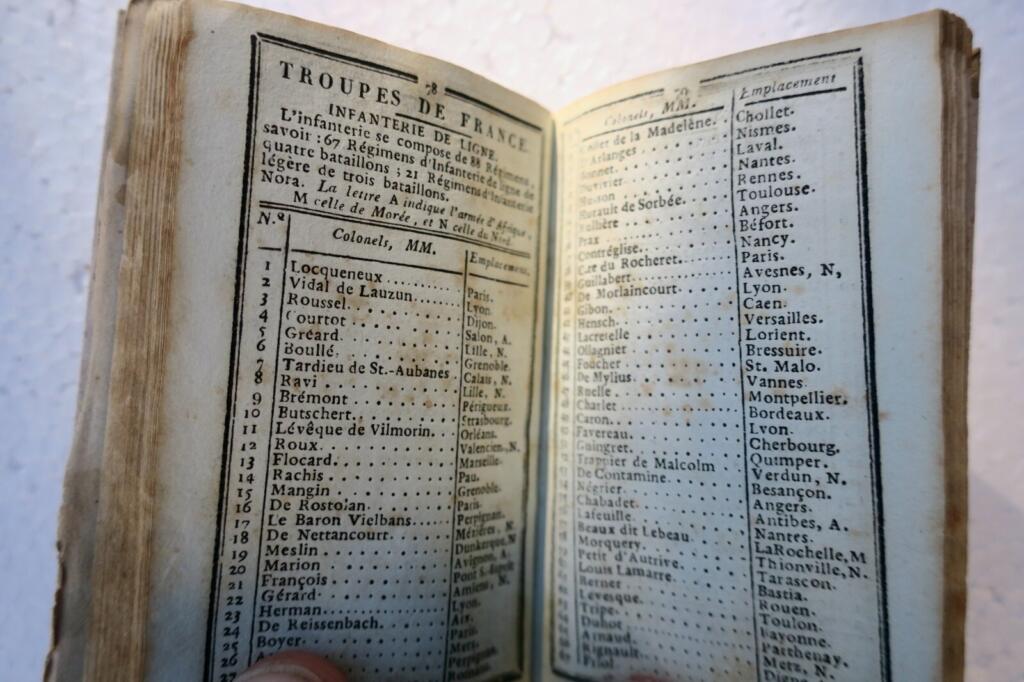 78
TROUPES DE FRANCE.
INFANTERIE DE LIGNE.
L'infanterie se compose de 88 Régimens,
savoir : 67 Régimens d'Infanterie de ligne de
quatre bataillons ; 21 Régimens d'Infanterie
légère de trois bataillons.
Nota. La lettre A indique l'armée d'Afrique,
M celle de Morée, et N celle du Nord.
N.º Colonels, MM. Emplacement.
1 Locqueneux Paris.
2 Vidal de Lauzun Lyon.
3 Roussel Dijon.
4 Courtot Salon, A.
5 Gréard Lille, N.
6 Boullé Grenoble.
7 Tardieu de St.-Aubanes Calais, N.
8 Ravi Lille, N.
9 Brémont Périgueux.
10 Butschert Strasbourg.
11 Lévêque de Vilmorin Orléans.
12 Roux Valencien., N.
13 Flocard Marseille.
14 Rachis Pau.
15 Mangin Grenoble.
16 De Rostolan Paris.
17 Le Baron Vielbans Perpignan.
18 De Nettancourt Mézières, N
19 Meslin Dunkerque, N
20 Marion Avignon, A.
21 François Pont S.-Esprit
22 Gérard Amiens, N.
23 Herman Lyon.
24 De Reissenbach Aix.
25 Boyer Paris.
26 Metz.
27 Perpignan.
79
Colonels, MM. Emplacement
de la Madelène. Chollet.
Arlanges Nismes.
Laval.
Duvivier Nantes.
Rennes.
Hurault de Sorbée Toulouse.
Angers.
Prax Béfort.
Contréglise Nancy.
C.te du Rocheret Paris.
Guillabert Avesnes, N,
De Morlaincourt Lyon.
Gibon Caen.
Hensch Versailles.
Lacretelle Lorient.
Ollagnier Bressuire.
Foucher St. Malo.
De Mylius Vannes
Ruelle Montpellier.
Charlet Bordeaux.
Caron Lyon.
Favereau Cherbourg.
Guingret Quimper.
Trappier de Malcolm Verdun, N.
De Contamine Besançon.
Négrier Angers.
Chabadet Antibes, A.
Lafeuille Nantes.
Beaux dit Lebeau La Rochelle, M
Morquery Thionville, N.
Petit d'Autrive Tarascon.
Louis Lamarre Bastia.
Berner Rouen.
Levesque Toulon.
Tripe Bayonne.
Duhot Parthenay.
Arnaud Metz, N.
Rignault